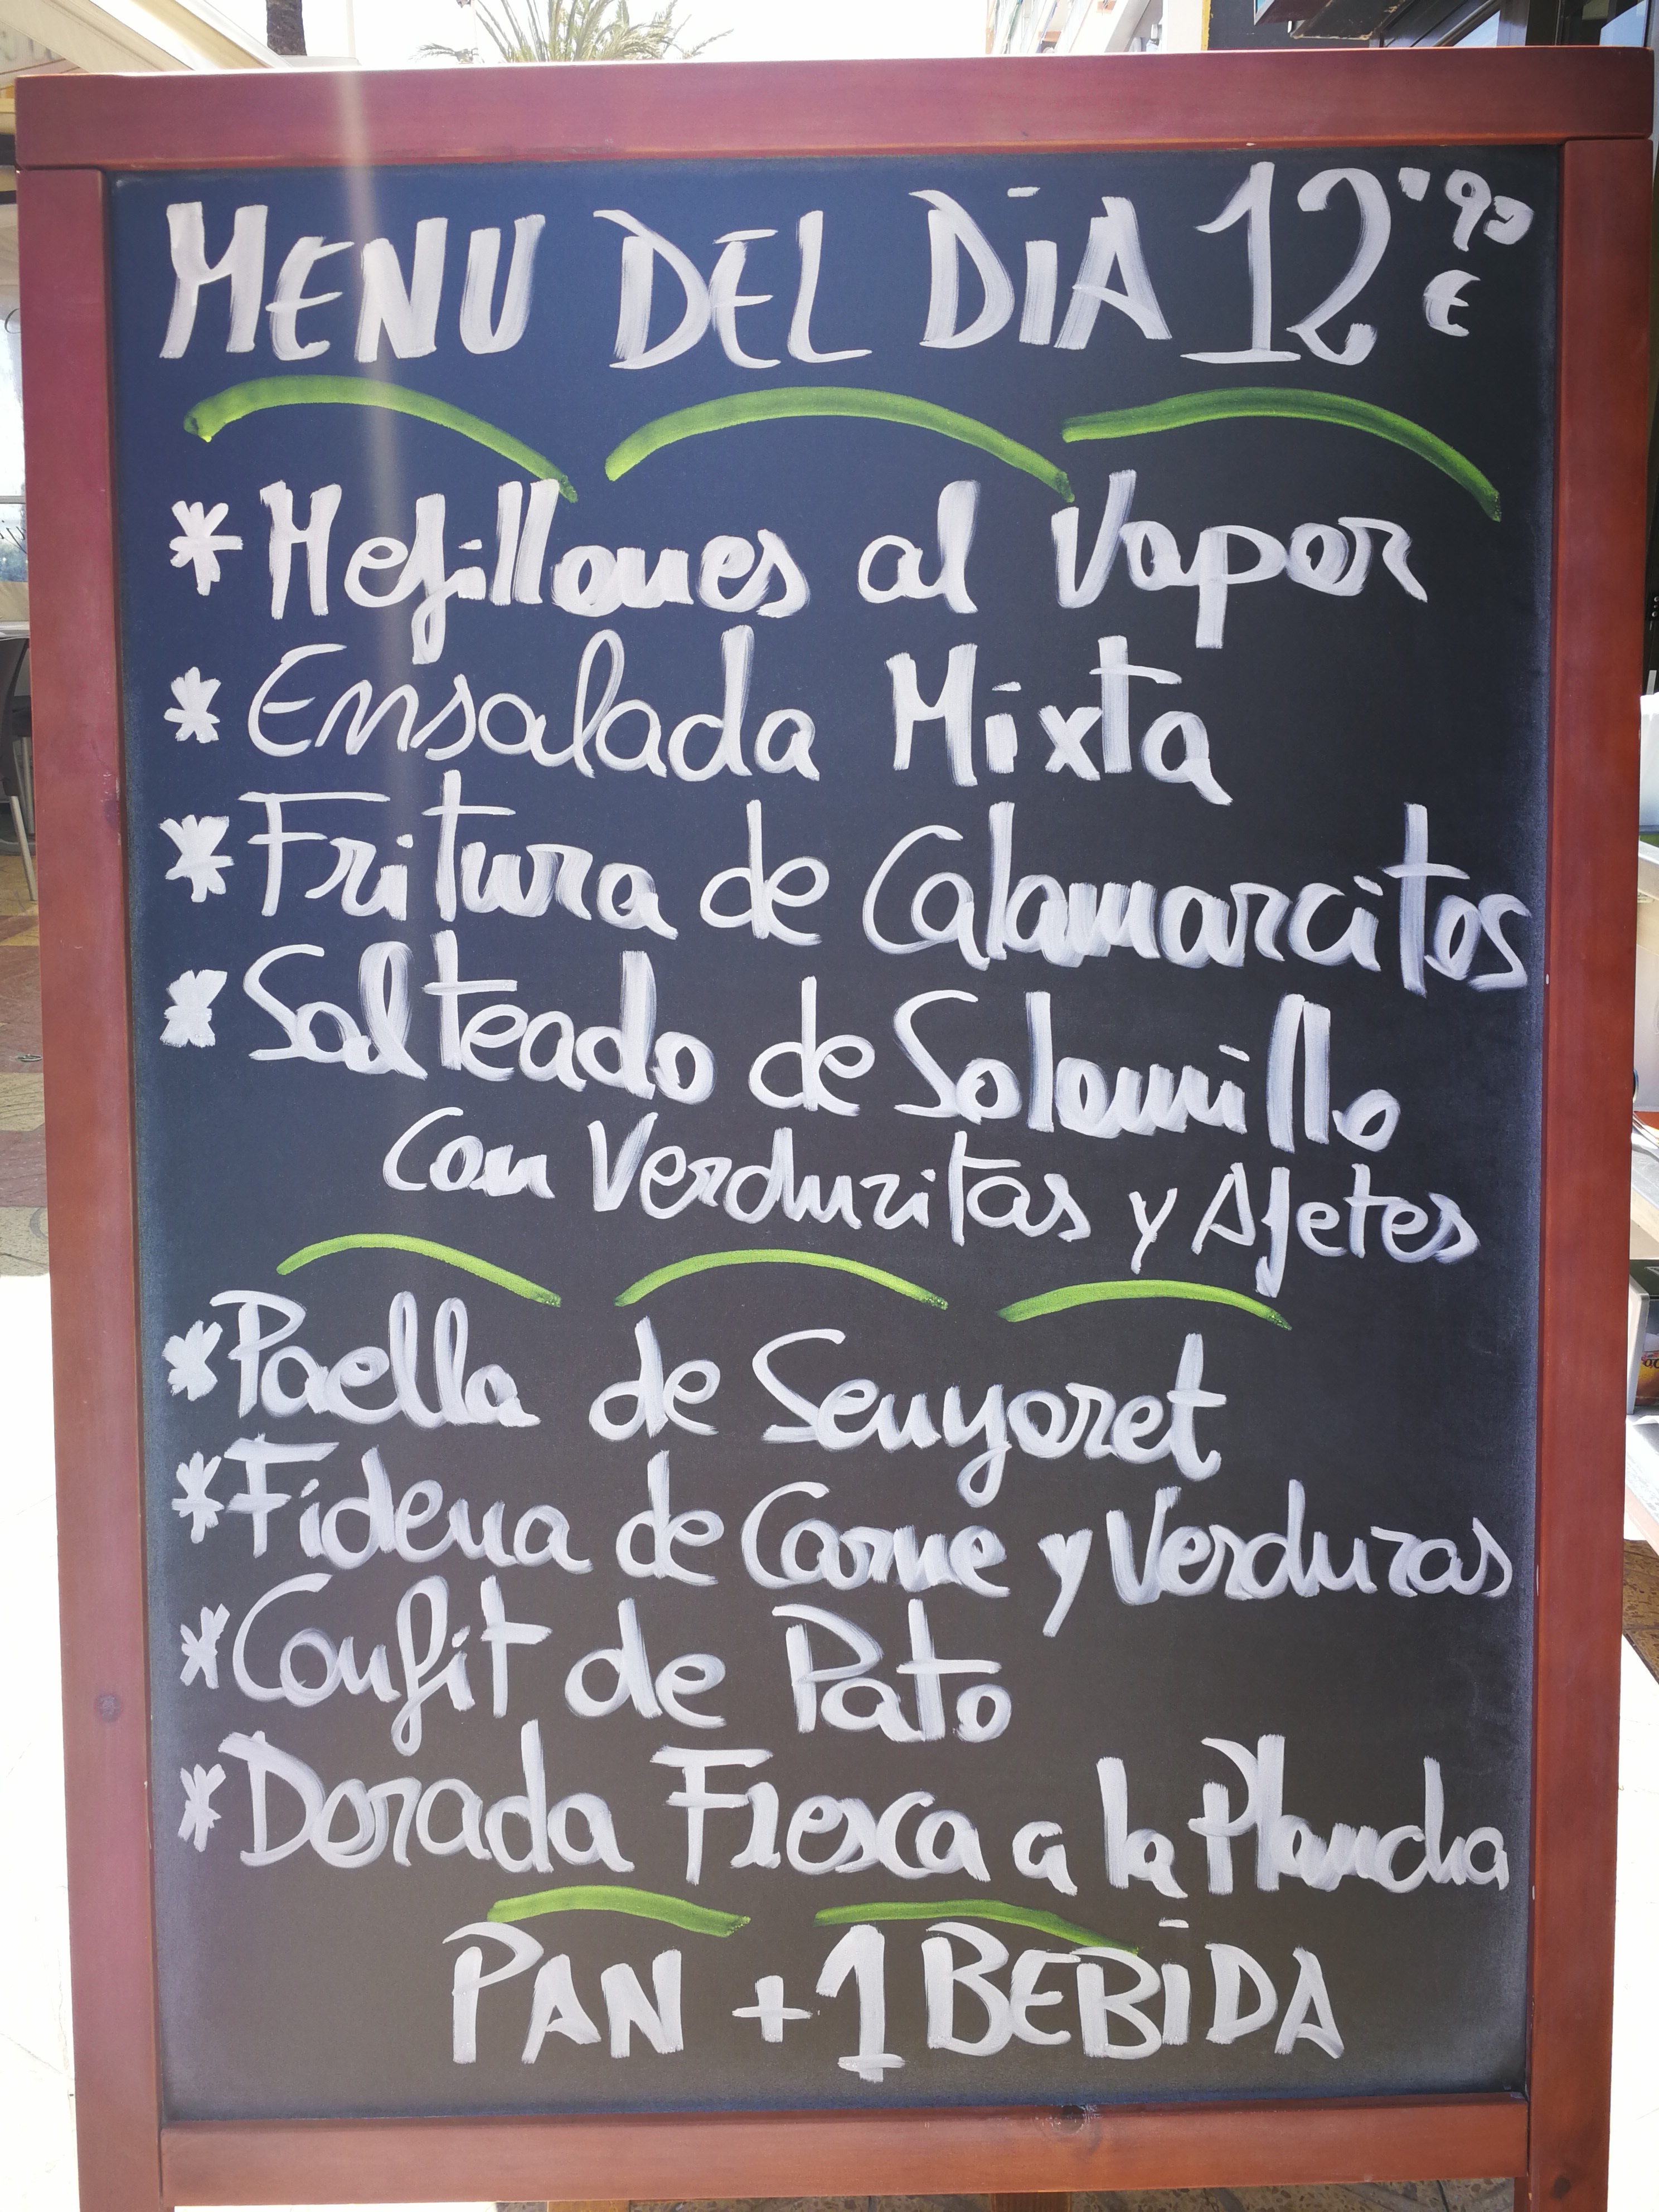 MENU DEL DÍA 12"90 €
* Mejillones al Vapor
* Ensalada Mixta
* Fritura de Calamarcitos
* Salteado de Solomillo
Con Verduritas y Ajetes
* Paella de Senyoret
* Fideua de Carne y Verduras
* Confit de Pato
* Dorada Fresca a la Plancha
PAN + 1 BEBIDA